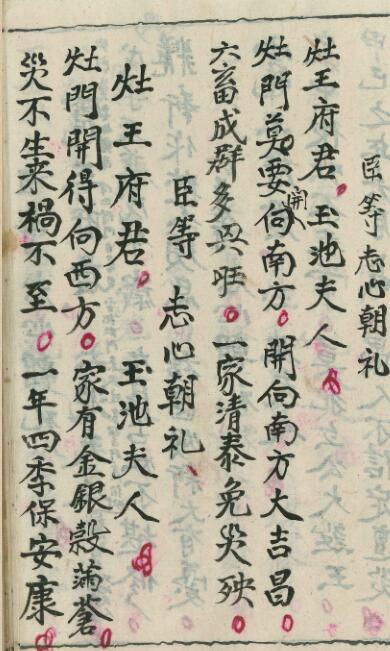 臣等志心朝礼
灶王府君玉池夫人
灶門莫要開向南方開向南方大吉昌
六畜成群多兴旺一家清泰免災殃
臣等志心朝礼
灶王府君玉池夫人
灶門開得向西方家有金銀穀滿蒼
災不生来禍不至一年四季保安康